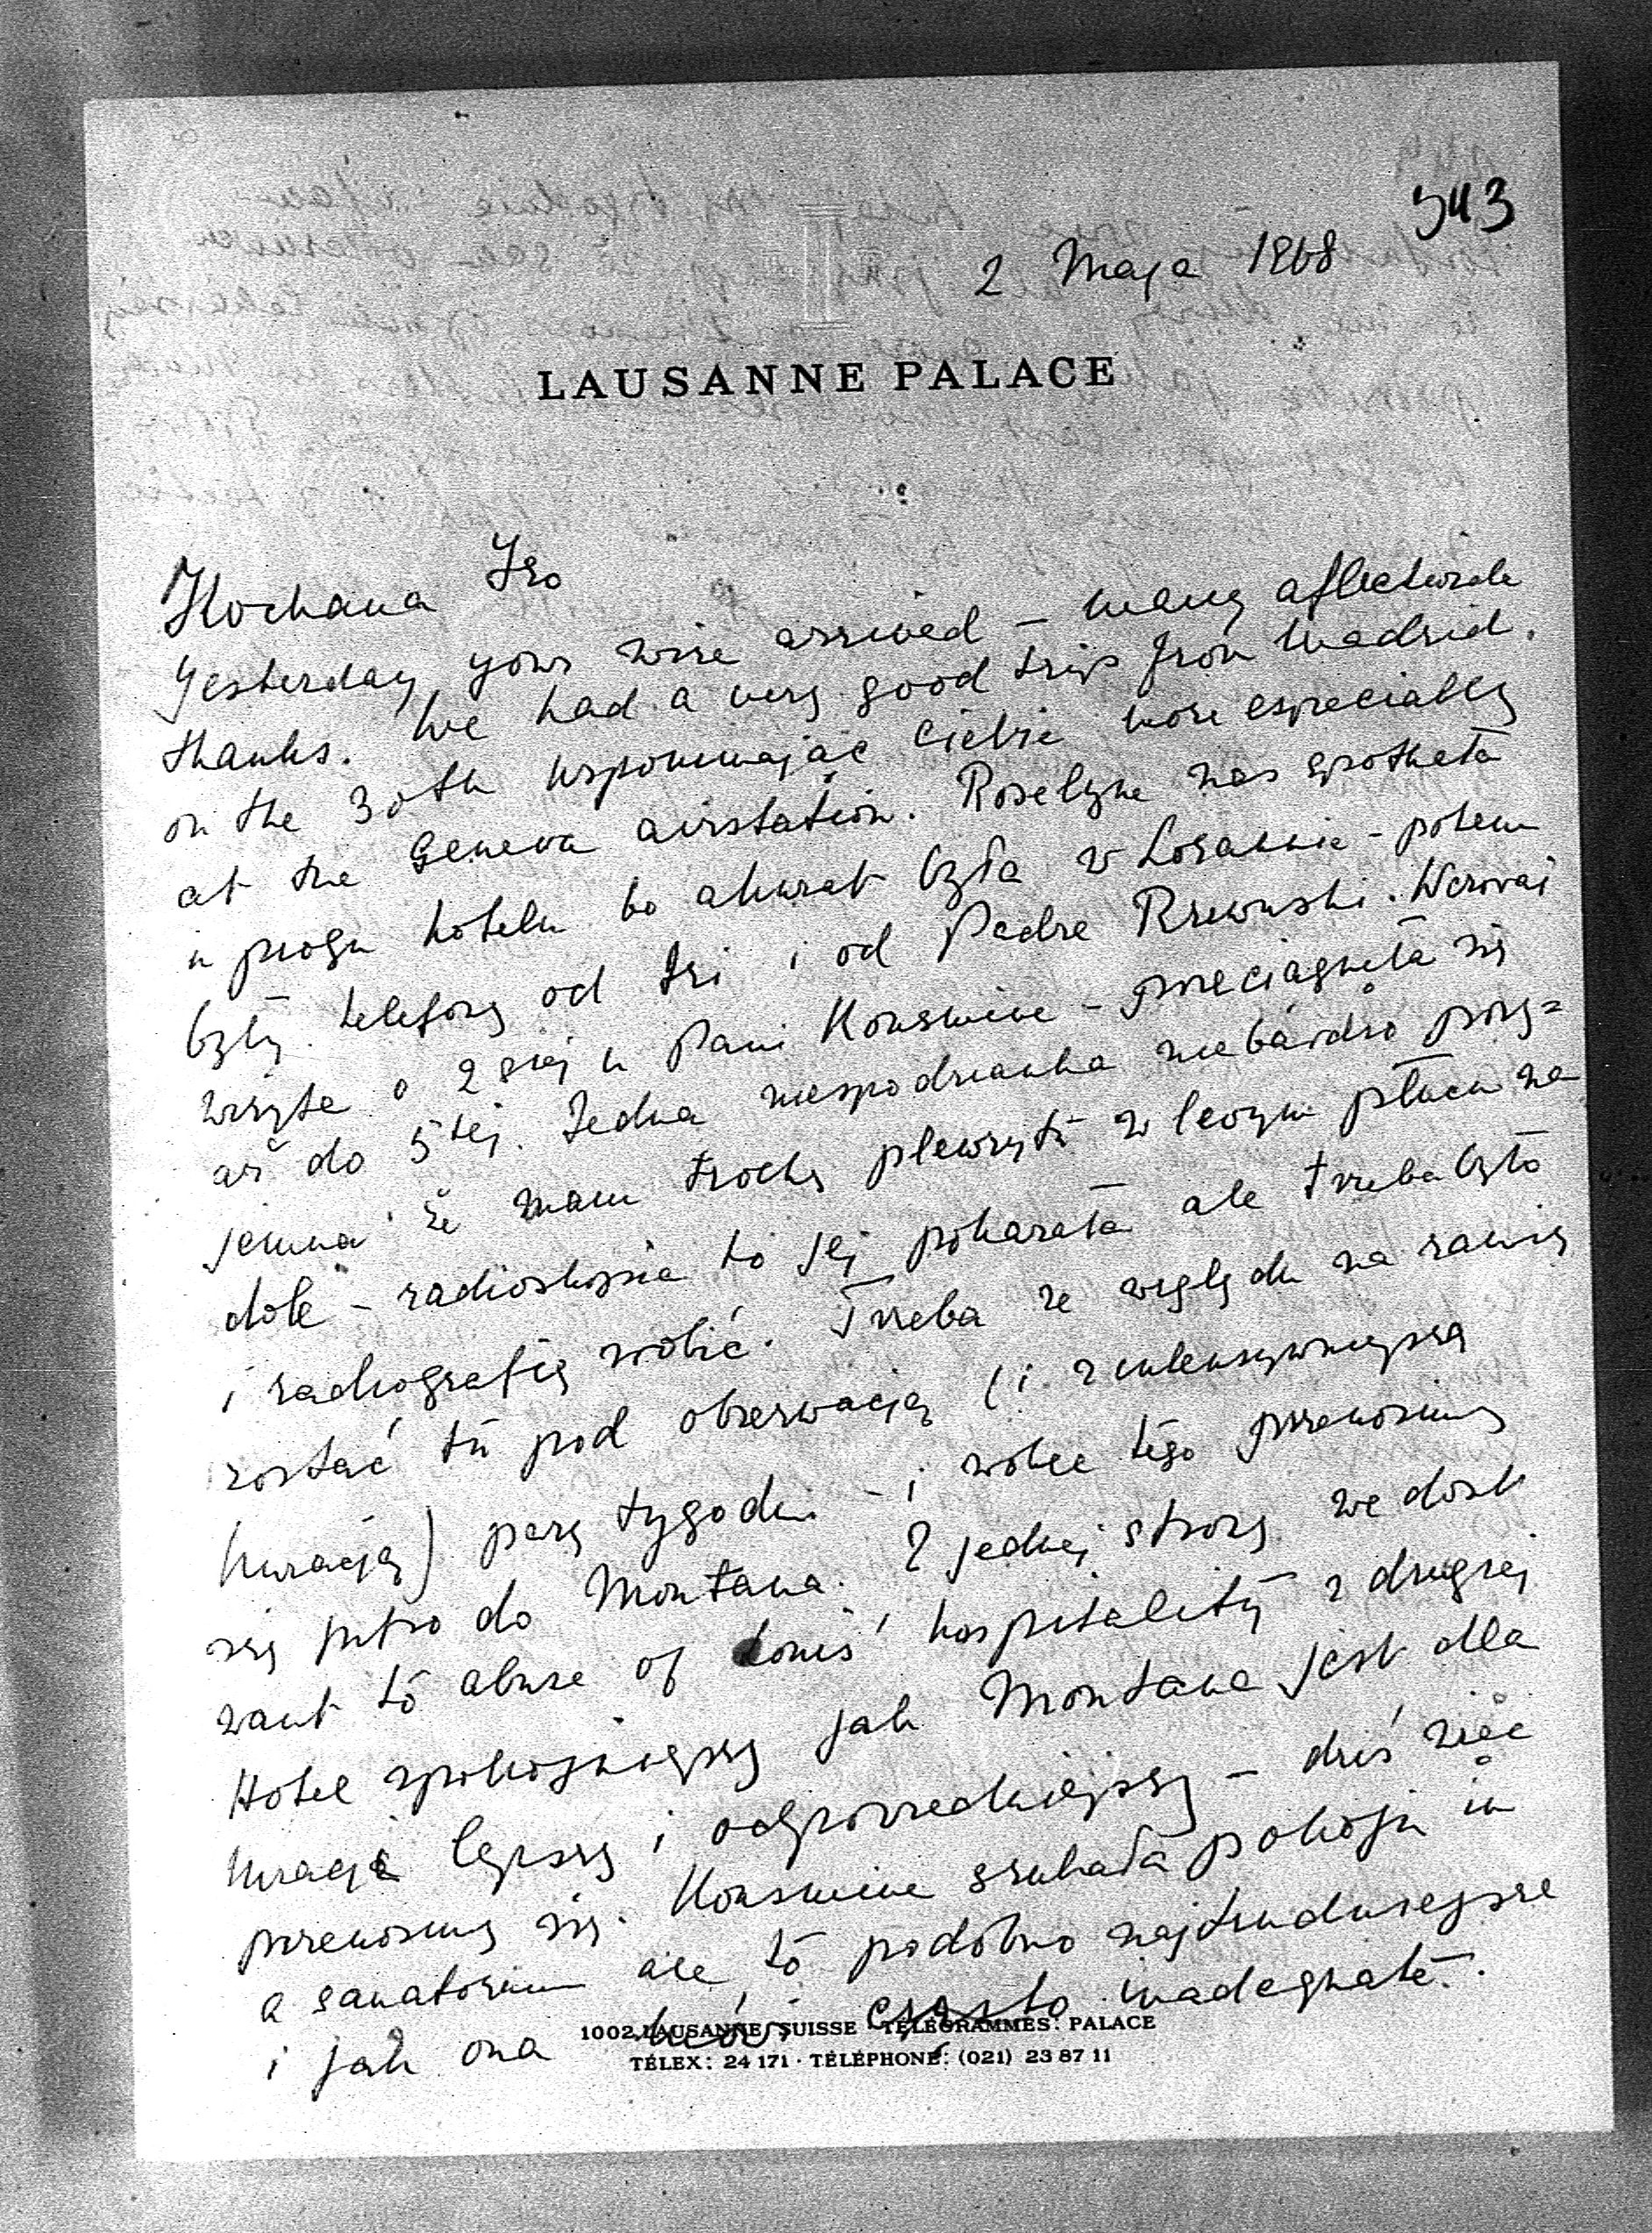 543
2 Maja 1968
LAUSANNE PALACE
Kochana Iso
Yesterday your wire arrived – many affectionate
thanks. We had a very good trip from Madrid.
on the 30th wspominając Ciebie more especially
at the Geneva airstation. Roselyne nas spotkała
u progu hotelu bo akurat była w Lozannie - potem
były telefony od Isi i od Padre Rzewuski. Wczoraj
wizyta o 2giej u Pani Kousmine - przeciągnęła się
aż do 5tej. Jedna niespodzianka niebardzo przy=
jemna że mam trochę plewryty w lewym płucu na
dole – radioskopia to jej pokazała ale trzeba było
i radiografię zrobić. Trzeba ze względu na
zostać tu pod obserwacją (i z intensywniejszą
kuracją) parę tygodni – i wobec tego przenosimy
się jutro do Montana. Z jednej strony we dont
want to abuse of hospitality z drugiej
Hotel spokojniejszy jak Montana jest dla
kuracji lepszy i odpowiedniejszy – dziś więc
przenosimy się. Kousmine szukała pokoju in
a sanatorium ale to podobno najtrudniejsze
i jak ona mówi często inadequate.
1002 LAUSANNE/SUISSE · TÉLÉGRAMMES: PALACE
TÉLEX: 24 171 · TÉLÉPHONE: (021) 23 87 11